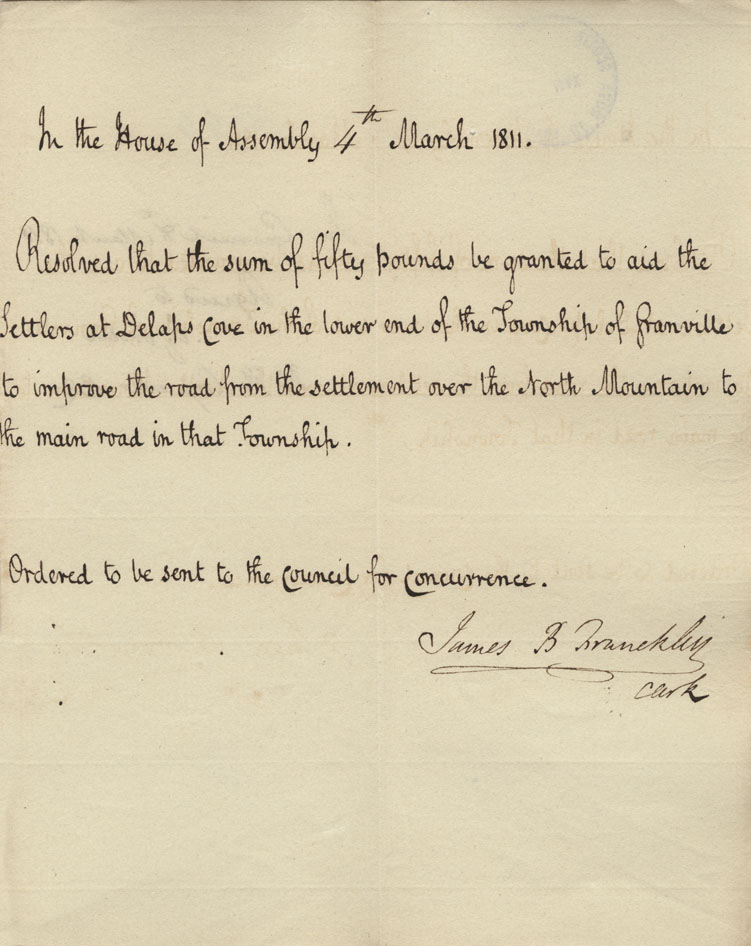 In the House of Assembly 4th March 1811.
Resolved that the sum of fifty pounds be granted to aid the
Settlers at Delaps Cove in the lower end of the Township of Granville
to improve the road from the settlement over the North Mountain to
the main road in that Township.
Ordered to be sent to the Council for concurrence.
James B Franckklin
Clerk